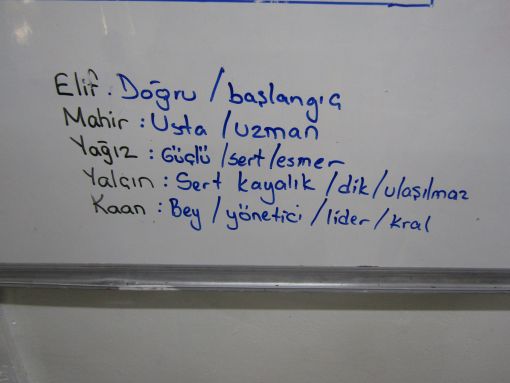 Elif : Doğru / başlangıç
Mahir : Usta / uzman
Yağız : Güçlü / sert / esmer
Yalçın : Sert kayalık / dik / ulaşılmaz
Kaan : Bey / yönetici / lider / kral